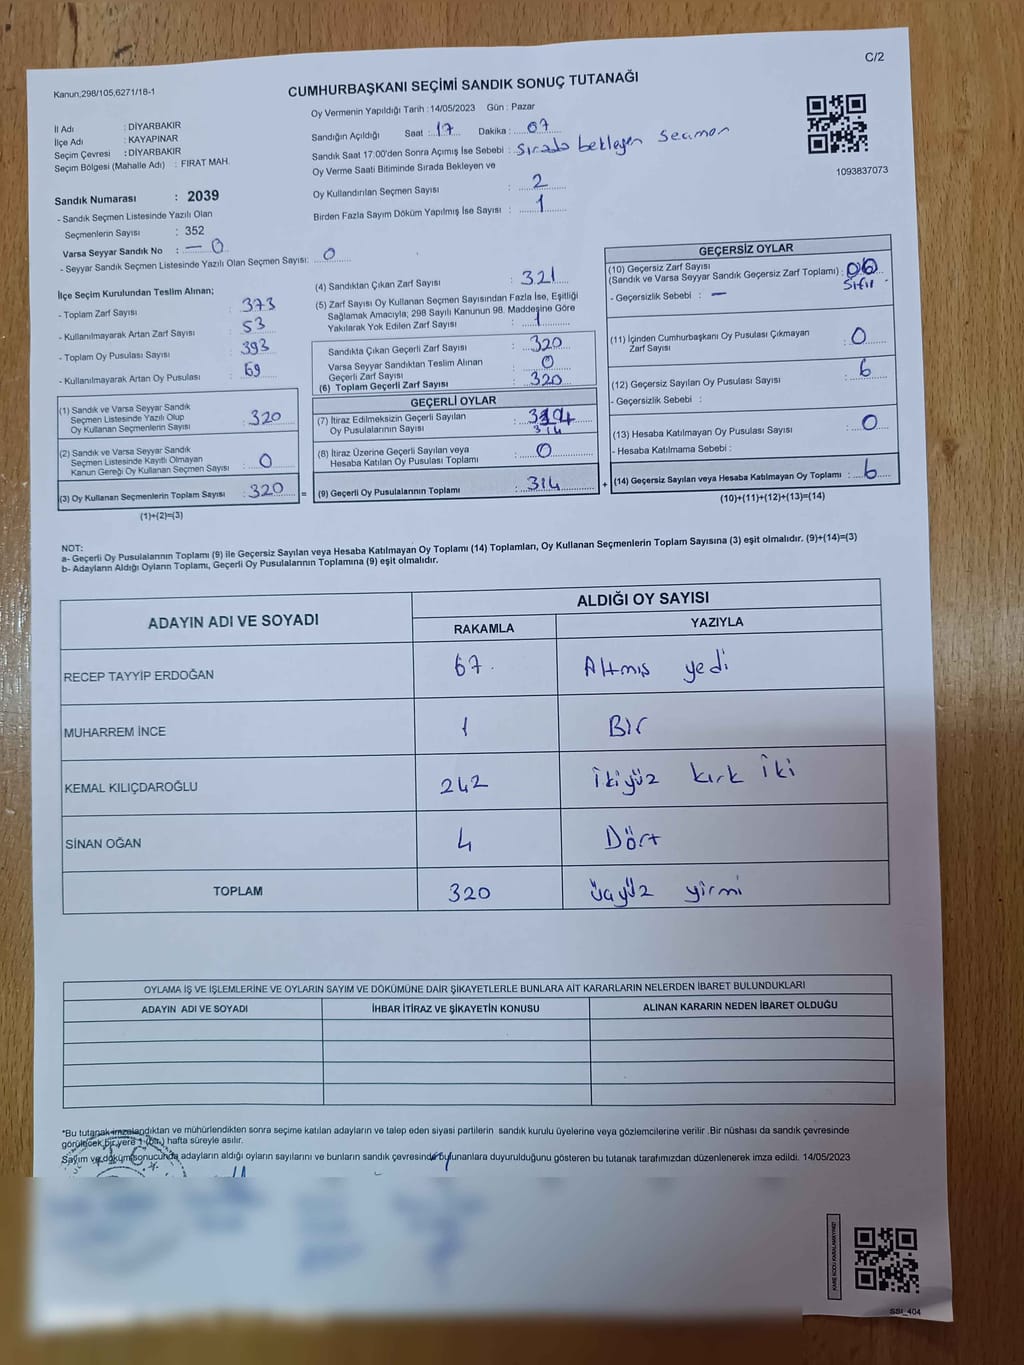 C/2
Kanun,298/105,6271/18-1
CUMHURBAŞKANI SEÇİMİ SANDIK SONUÇ TUTANAĞI
Oy Vermenin Yapıldığı Tarih : 14/05/2023 Gün : Pazar
İl Adı : DİYARBAKIR
İlçe Adı : KAYAPINAR
Seçim Çevresi : DİYARBAKIR
Seçim Bölgesi (Mahalle Adı) : FIRAT MAH.
Sandığın Açıldığı Saat : 17 Dakika : 07
Sandık Saat 17:00'den Sonra Açımış İse Sebebi : Sırada bekleyen seçmen
Oy Verme Saati Bitiminde Sırada Bekleyen ve
Oy Kullandırılan Seçmen Sayısı : 2
Birden Fazla Sayım Döküm Yapılmış İse Sayısı : 1
1093837073
Sandık Numarası : 2039
- Sandık Seçmen Listesinde Yazılı Olan
Seçmenlerin Sayısı : 352
Varsa Seyyar Sandık No : — 0
- Seyyar Sandık Seçmen Listesinde Yazılı Olan Seçmen Sayısı: 0
İlçe Seçim Kurulundan Teslim Alınan;
- Toplam Zarf Sayısı : 373
- Kullanılmayarak Artan Zarf Sayısı : 53
- Toplam Oy Pusulası Sayısı : 393
- Kullanılmayarak Artan Oy Pusulası : 69
(1) Sandık ve Varsa Seyyar Sandık
Seçmen Listesinde Yazılı Olup
Oy Kullanan Seçmenlerin Sayısı : 320
(2) Sandık ve Varsa Seyyar Sandık
Seçmen Listesinde Kayıtlı Olmayan
Kanun Gereği Oy Kullanan Seçmen Sayısı : 0
(3) Oy Kullanan Seçmenlerin Toplam Sayısı : 320 =
(1)+(2)=(3)
(4) Sandıktan Çıkan Zarf Sayısı : 321
(5) Zarf Sayısı Oy Kullanan Seçmen Sayısından Fazla İse, Eşitliği
Sağlamak Amacıyla; 298 Sayılı Kanunun 98. Maddesine Göre
Yakılarak Yok Edilen Zarf Sayısı : 1
Sandıkta Çıkan Geçerli Zarf Sayısı : 320
Varsa Seyyar Sandıktan Teslim Alınan
Geçerli Zarf Sayısı : 0
(6) Toplam Geçerli Zarf Sayısı : 320
GEÇERLİ OYLAR
(7) İtiraz Edilmeksizin Geçerli Sayılan
Oy Pusulalarının Sayısı : 314
314
(8) İtiraz Üzerine Geçerli Sayılan veya
Hesaba Katılan Oy Pusulası Toplamı : 0
(9) Geçerli Oy Pusulalarının Toplamı : 314 +
GEÇERSİZ OYLAR
(10) Geçersiz Zarf Sayısı
(Sandık ve Varsa Seyyar Sandık Geçersiz Zarf Toplamı) : 00
Sıfır
- Geçersizlik Sebebi : —
(11) İçinden Cumhurbaşkanı Oy Pusulası Çıkmayan
Zarf Sayısı : 0
(12) Geçersiz Sayılan Oy Pusulası Sayısı : 6
- Geçersizlik Sebebi :
(13) Hesaba Katılmayan Oy Pusulası Sayısı : 0
- Hesaba Katılmama Sebebi :
(14) Geçersiz Sayılan veya Hesaba Katılmayan Oy Toplamı : 6
(10)+(11)+(12)+(13)=(14)
NOT:
a- Geçerli Oy Pusulalarının Toplamı (9) ile Geçersiz Sayılan veya Hesaba Katılmayan Oy Toplamı (14) Toplamları, Oy Kullanan Seçmenlerin Toplam Sayısına (3) eşit olmalıdır. (9)+(14)=(3)
b- Adayların Aldığı Oyların Toplamı, Geçerli Oy Pusulalarının Toplamına (9) eşit olmalıdır.
ADAYIN ADI VE SOYADI ALDIĞI OY SAYISI
RAKAMLA YAZIYLA
RECEP TAYYİP ERDOĞAN 67. Altmış yedi
MUHARREM İNCE 1 Bir
KEMAL KILIÇDAROĞLU 242 İkiyüz kırk iki
SİNAN OĞAN 4 Dört
TOPLAM 320 üçyüz yirmi
OYLAMA İŞ VE İŞLEMLERİNE VE OYLARIN SAYIM VE DÖKÜMÜNE DAİR ŞİKAYETLERLE BUNLARA AİT KARARLARIN NELERDEN İBARET BULUNDUKLARI
ADAYIN ADI VE SOYADI İHBAR İTİRAZ VE ŞİKAYETİN KONUSU ALINAN KARARIN NEDEN İBARET OLDUĞU
*Bu tutanak imzalandıktan ve mühürlendikten sonra seçime katılan adayların ve talep eden siyasi partilerin sandık kurulu üyelerine veya gözlemcilerine verilir .Bir nüshası da sandık çevresinde
görülecek bir yere 1 (bir) hafta süreyle asılır.
Sayım ve döküm sonucunda adayların aldığı oyların sayılarını ve bunların sandık çevresinde bulunanlara duyurulduğunu gösteren bu tutanak tarafımızdan düzenlenerek imza edildi. 14/05/2023
KARE KODU KARALAMAYINIZ!
SSI_404